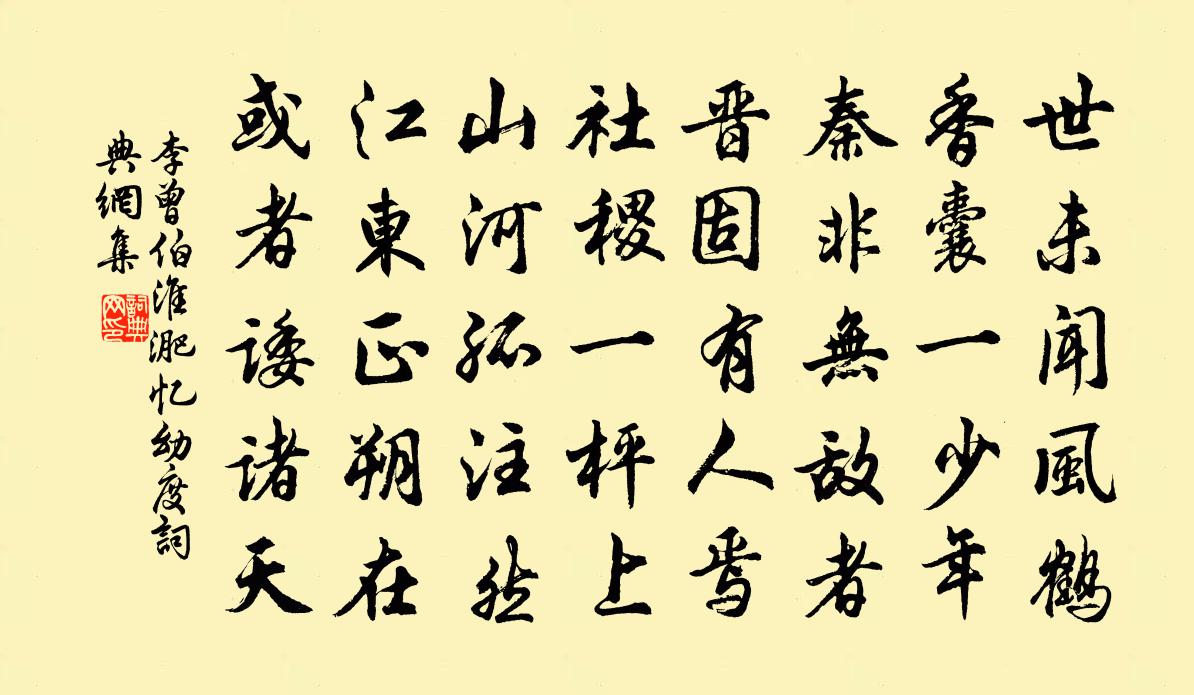 世未聞風鶴
香囊一少年
秦非無敌者
晋固有人焉
社稷一枰上
山河孤注然
江東正朔在
或者諉諸天
李曾伯淮淝忆幼度詞
典網集
詞典
网印